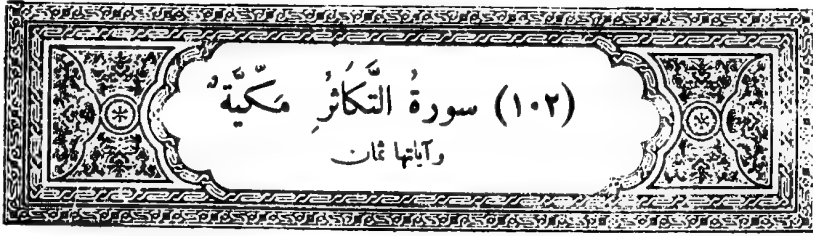 (١٠٢) سورةُ التَّكَاثُرِ مَكّيَّةٌ
وآياتها ثمان